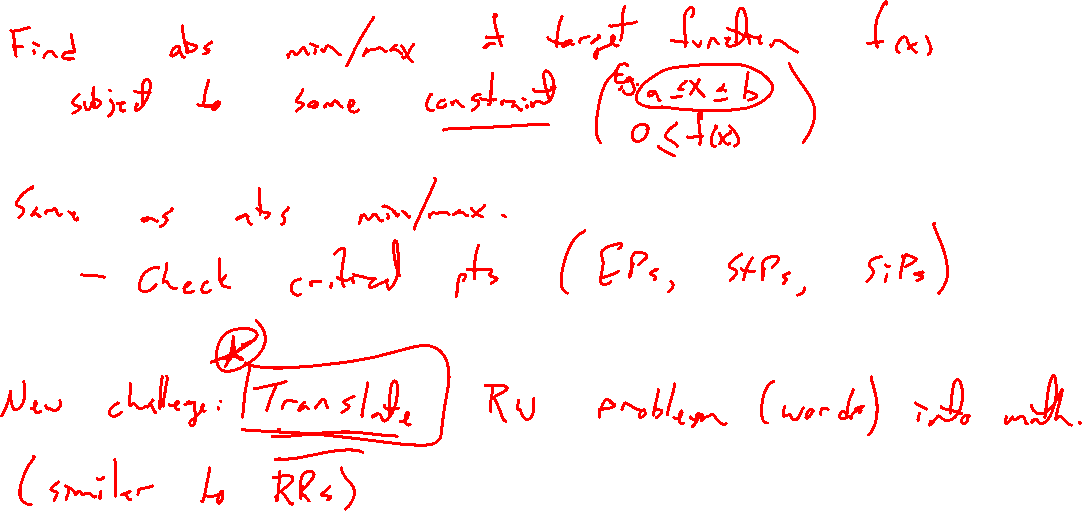 Find abs min/max of target function f(x)
subject to some constraint (Eg. a ≤ x ≤ b
0 ≤ f(x))
Same as abs min/max.
– Check critical pts (EPs, StPs, SiPs)
New challenge: Translate RW problem (words) into math.
(similar to RRs)